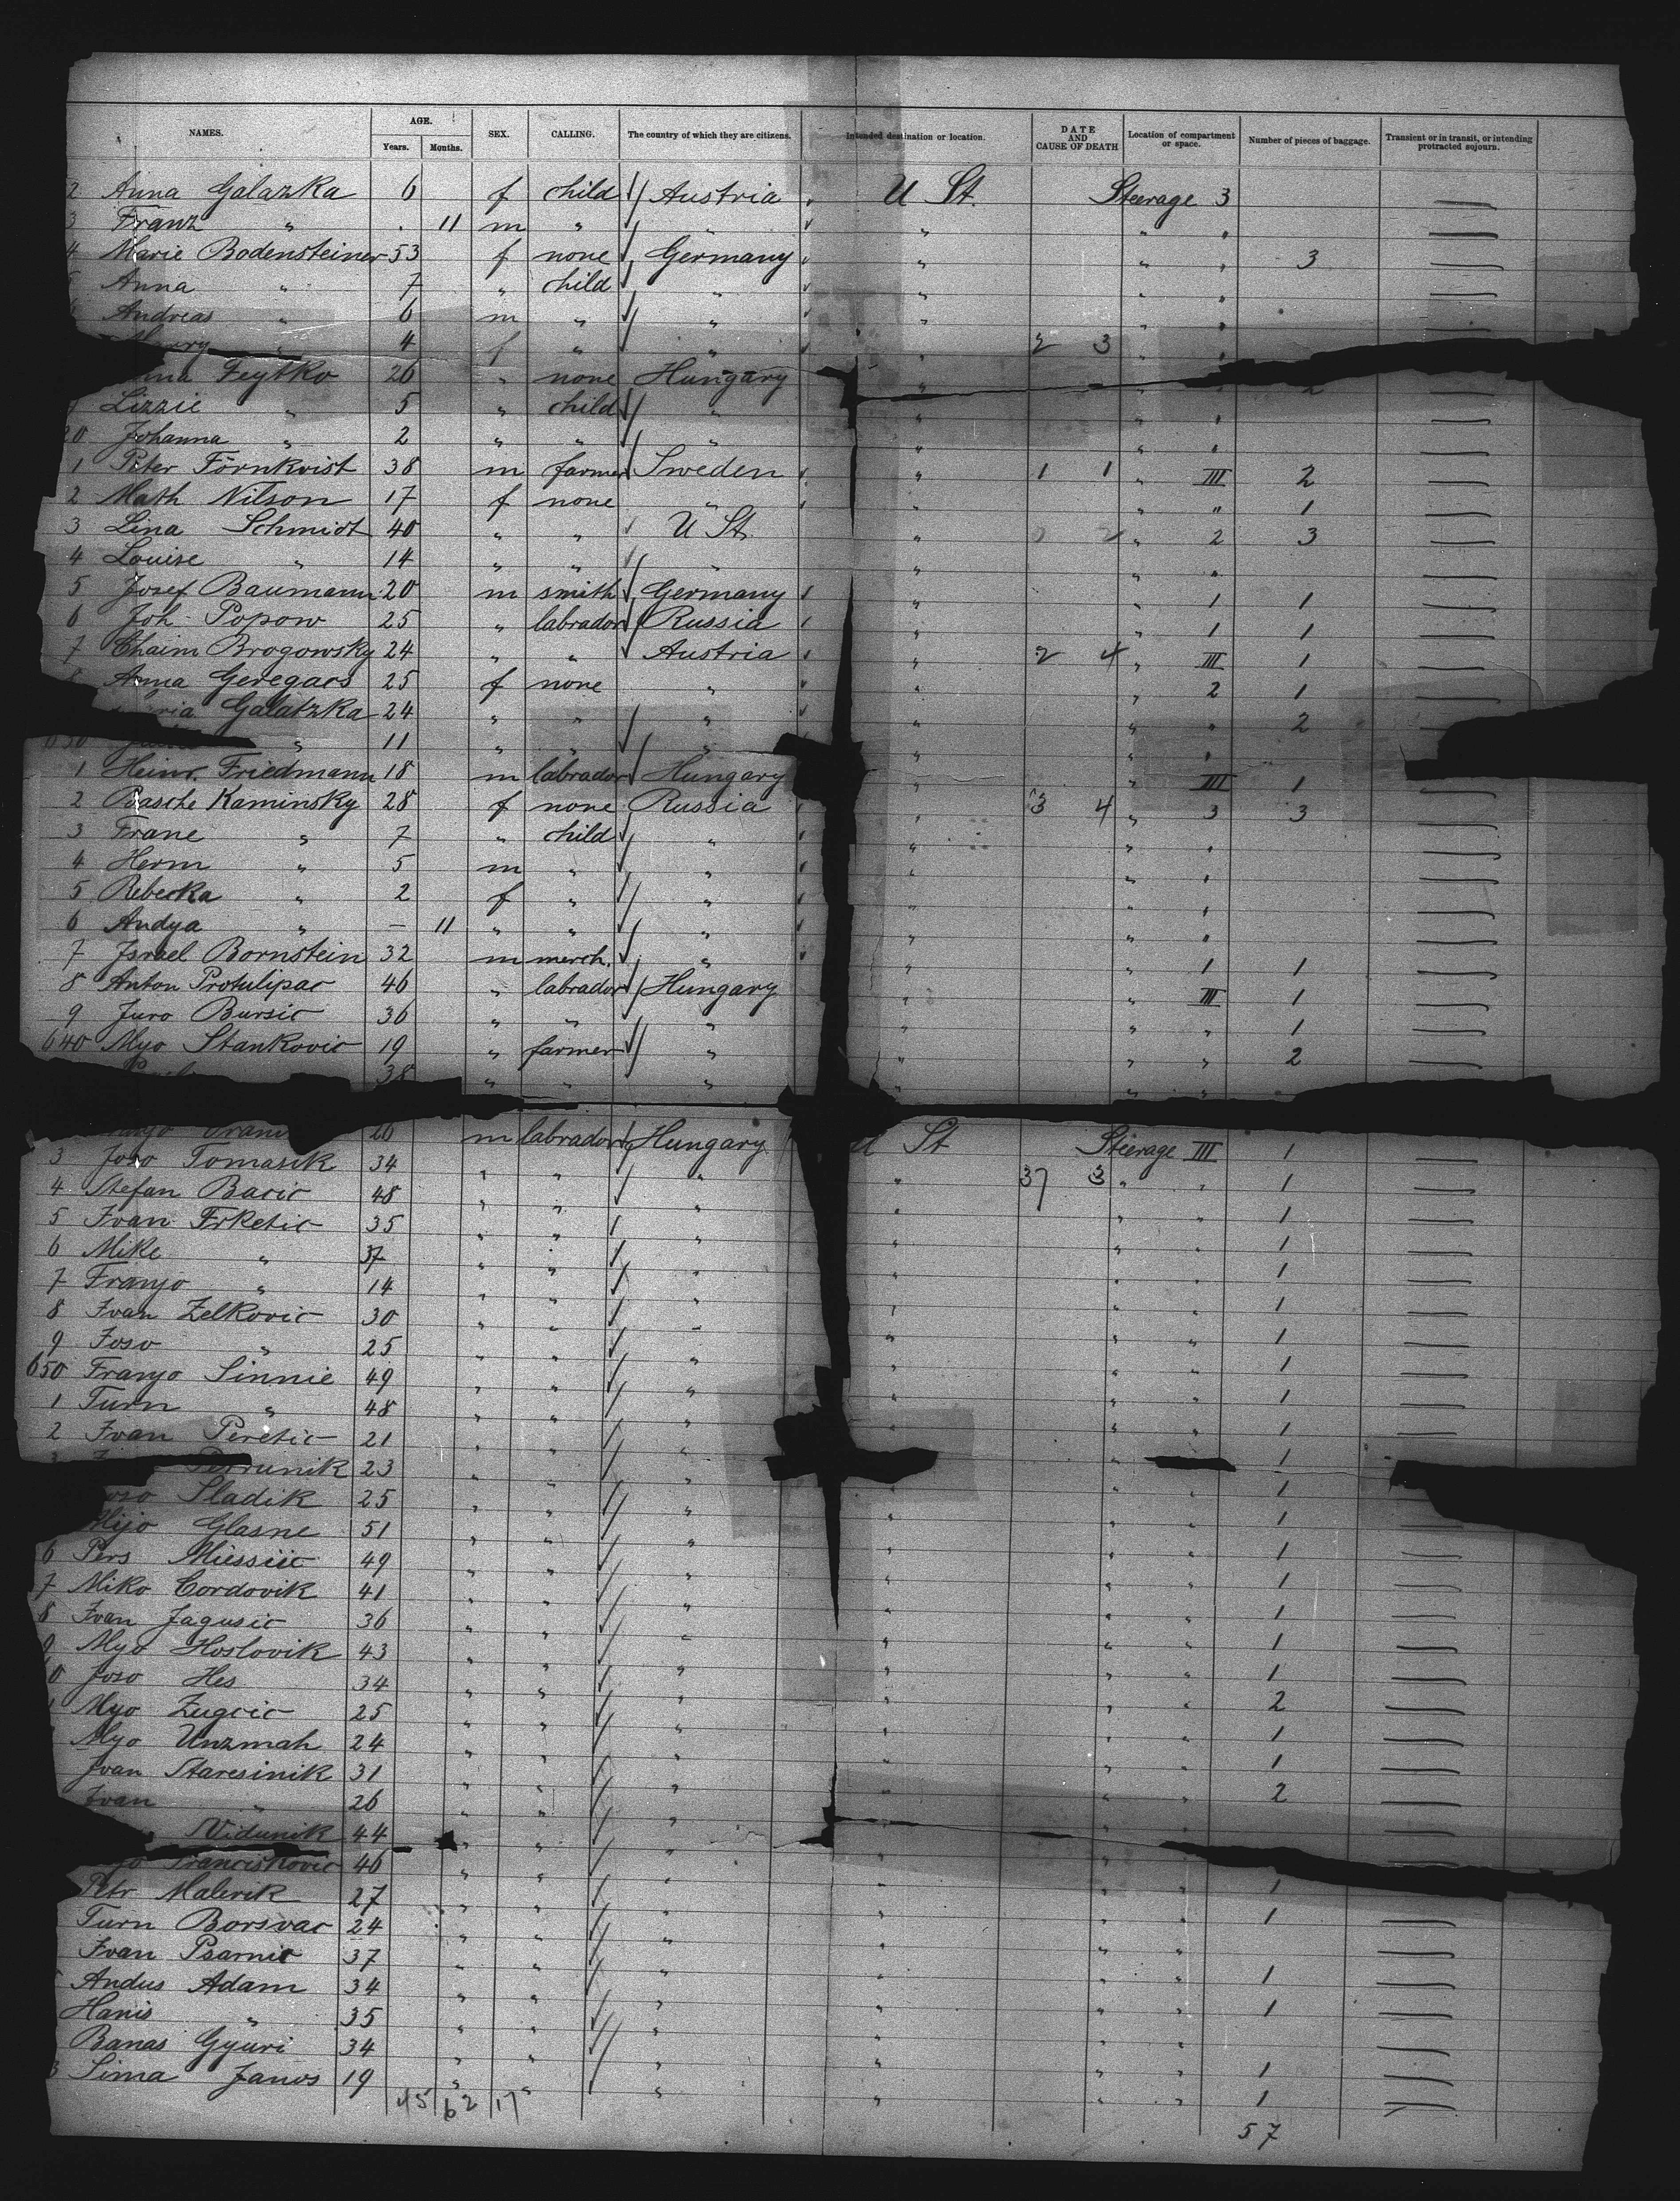 NAMES. AGE. Years. Months. SEX. CALLING. The country of which they are citizens. Intended destination or location. DATE AND CAUSE OF DEATH Location of compartment or space. Number of pieces of baggage. Transient or in transit, or intending protracted sojourn.
2 Anna Galazka 6 f child Austria U St. Steerage 3
3 Franz " 11 m " " " " "
4 Marie Bodensteiner 53 f none Germany " " " 3
Anna " 7 " child " " " "
Andreas " 6 m " " " " "
4 f " " " 2 3 " "
Feytko 26 " none Hungary " " " 2
Lizzie " 5 " child " " " "
20 Johanna " 2 " " " " " "
1 Peter Förnkvist 38 m farmer Sweden " 1 1 " III 2
2 Math Nilson 17 f none " " " " 1
3 Lina Schmidt 40 " " U St. " " 2 3
4 Louise " 14 " " " " " "
5 Josef Baumann 20 m smith Germany " " 1 1
6 Joh. Popow 25 " labrador Russia " " 1 1
7 Chaim Brogowsky 24 " " Austria " 2 4 " III 1
8 Anna Geregacs 25 f none " " " 2 1
Galatzka 24 " " " " " " 2
630 " 11 " " " " " "
1 Heinr. Friedmann 18 m labrador Hungary " " III 1
2 Basche Kaminsky 28 f none Russia " 3 4 " 3 3
3 Frane " 7 " child " " " "
4 Herm " 5 m " " " " "
5 Rebecka " 2 f " " " " "
6 Andya " – 11 " " " " " "
7 Israel Bornstein 32 m merch. " " " 1 1
8 Anton Protulipac 46 " labrador Hungary " " III 1
9 Juro Bursic 36 " " " " " " 1
640 Myo Stankovic 19 " farmer " " " " 2
38 " " " " " "
26 m labrador Hungary U St Steerage III 1
3 Joso Tomasik 34 " " " " 37 3 " " 1
4 Stefan Bacic 48 " " " " " " 1
5 Ivan Frketic 35 " " " " " " 1
6 Mike " 37 " " " " " " 1
7 Franjo " 14 " " " " " " 1
8 Ivan Zelkovic 30 " " " " " " 1
9 Joso " 25 " " " " " " 1
650 Franjo Sinnie 49 " " " " " " 1
1 Turn " 48 " " " " " " 1
2 Ivan Peretic 21 " " " " " " 1
23 " " " " " " 1
Sladik 25 " " " " " " 1
Mijo Glasne 51 " " " " " " 1
6 Pers Miessiic 49 " " " " " " 1
7 Miko Cordovik 41 " " " " " " 1
8 Ivan Jagusic 36 " " " " " " 1
9 Myo Hoslovik 43 " " " " " " 1
0 Joso Hes 34 " " " " " " 2
Myo Zugcic 25 " " " " " " 1
Myo Unzmah 24 " " " " " " 1
Ivan Staresinik 31 " " " " " " 2
Ivan " 26 " " " " " "
Vidunik 44 " " " " "
Franciskovic 46 " " " " " " 1
Petr Malerik 27 " " " " " " 1
Turn Borsvac 24 " " " " " "
Ivan Psarnic 37 " " " " " " 1
Andus Adam 34 " " " " " " 1
Hanis " 35 " " " "
Banas Gyuri 34 " " " " " " 1
3 Sima Janos 19 " " " " " " 1
45 62 17 57